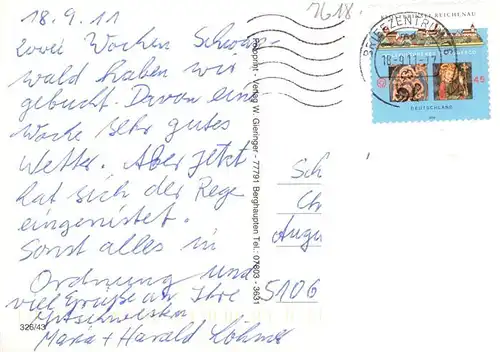 18.9.11
Zwei Wochen Schwarz-
wald haben wir
gebucht. Davon eine
Woche sehr gutes
Wetter. Aber jetzt
hat sich der Rege
eingenistet.
Sonst alles in
Ordnung und
viel Grüße an Ihre
Maria + Harald
326/43
Verlag W. Gieringer - 77791 Berghaupten Tel.: 07803 - 3631
7618.
REICHENAU
BRIEFZENTRUM
18-9.11-17
45
DEUTSCHLAND
Sch
Ch
Augu
5106